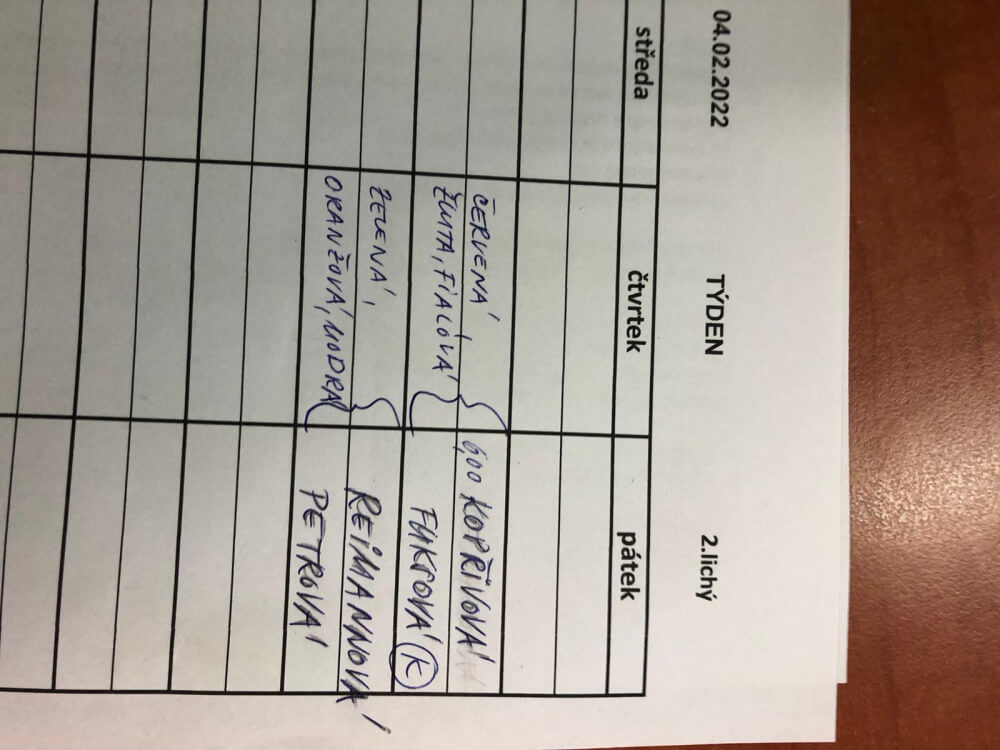 04.02.2022 TÝDEN 2.lichý
středa čtvrtek pátek
ČERVENÁ, 6,00 KOPŘIVOVÁ
ŽLUTÁ, FIALOVÁ FUKSOVÁ K
ZELENÁ, REIMANNOVÁ
ORANŽOVÁ, MODRÁ PETROVÁ